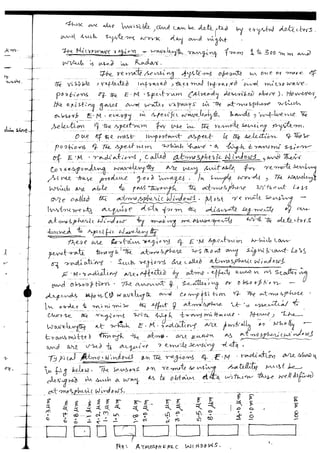 These are also invisible, and can be detected by crystal detectors.
and such systems work day and night
The Microwave region - wavelength ranging from 1 to 300 mm and
which is used in Radar.
The remote sensing systems operate in one or more of
the visible reflected infrared, thermal infrared and microwave
portions of the E.M. spectrum (already described above). However,
the existing gases and water vapours in the atmosphere which
absorb E.M. energy in specific wavelength bands, influence the
selection of the spectrum for use in the remote sensing system.
One of the most important aspect is the selection of those
portions of the spectrum which have a high transmission
of E.M. radiations, called atmospheric windows, and their
corresponding wavelengths are very suitable for remote sensing
since these produce good images. In simple words, the wavelengths
which are able to pass through the atmosphere without loss
are called the atmospheric windows. Most remote sensing
instruments acquire data from the discrete segments of
atmospheric window by making measurements with detectors
tuned to specific wavelengths
These are certain regions of E.M spectrum which can
penetrate through the atmosphere without any significant loss
of radiation. Such regions are called atmospheric windows
E.M. radiations are affected by atmo. effects such as scattering
and absorption. The amount of scattering or absorption
depends upon wavelength and composition of the atmosphere.
In order to minimise the effect of atmosphere it is essential to
choose the regions with high transmittance. Hence, the
wavelengths at which E.M. radiations are partially or wholly
transmitted through the atmo. are known as atmospheric windows
and are used to acquire remote sensing data.
Typical Atmo. windows on the regions of E.M. radiation are shown
in fig below. The sensors on remote sensing satellite must be
designed in such a way as to obtain data within these well defined
atmospheric windows.